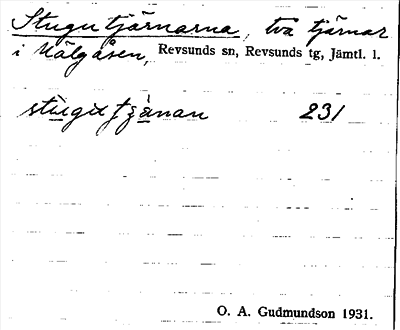 Stugutjärnarna, två tjärnar
i Kälgåsen, Revsunds sn, Revsunds tg, Jämtl. l.
231
O. A. Gudmundson 1931.